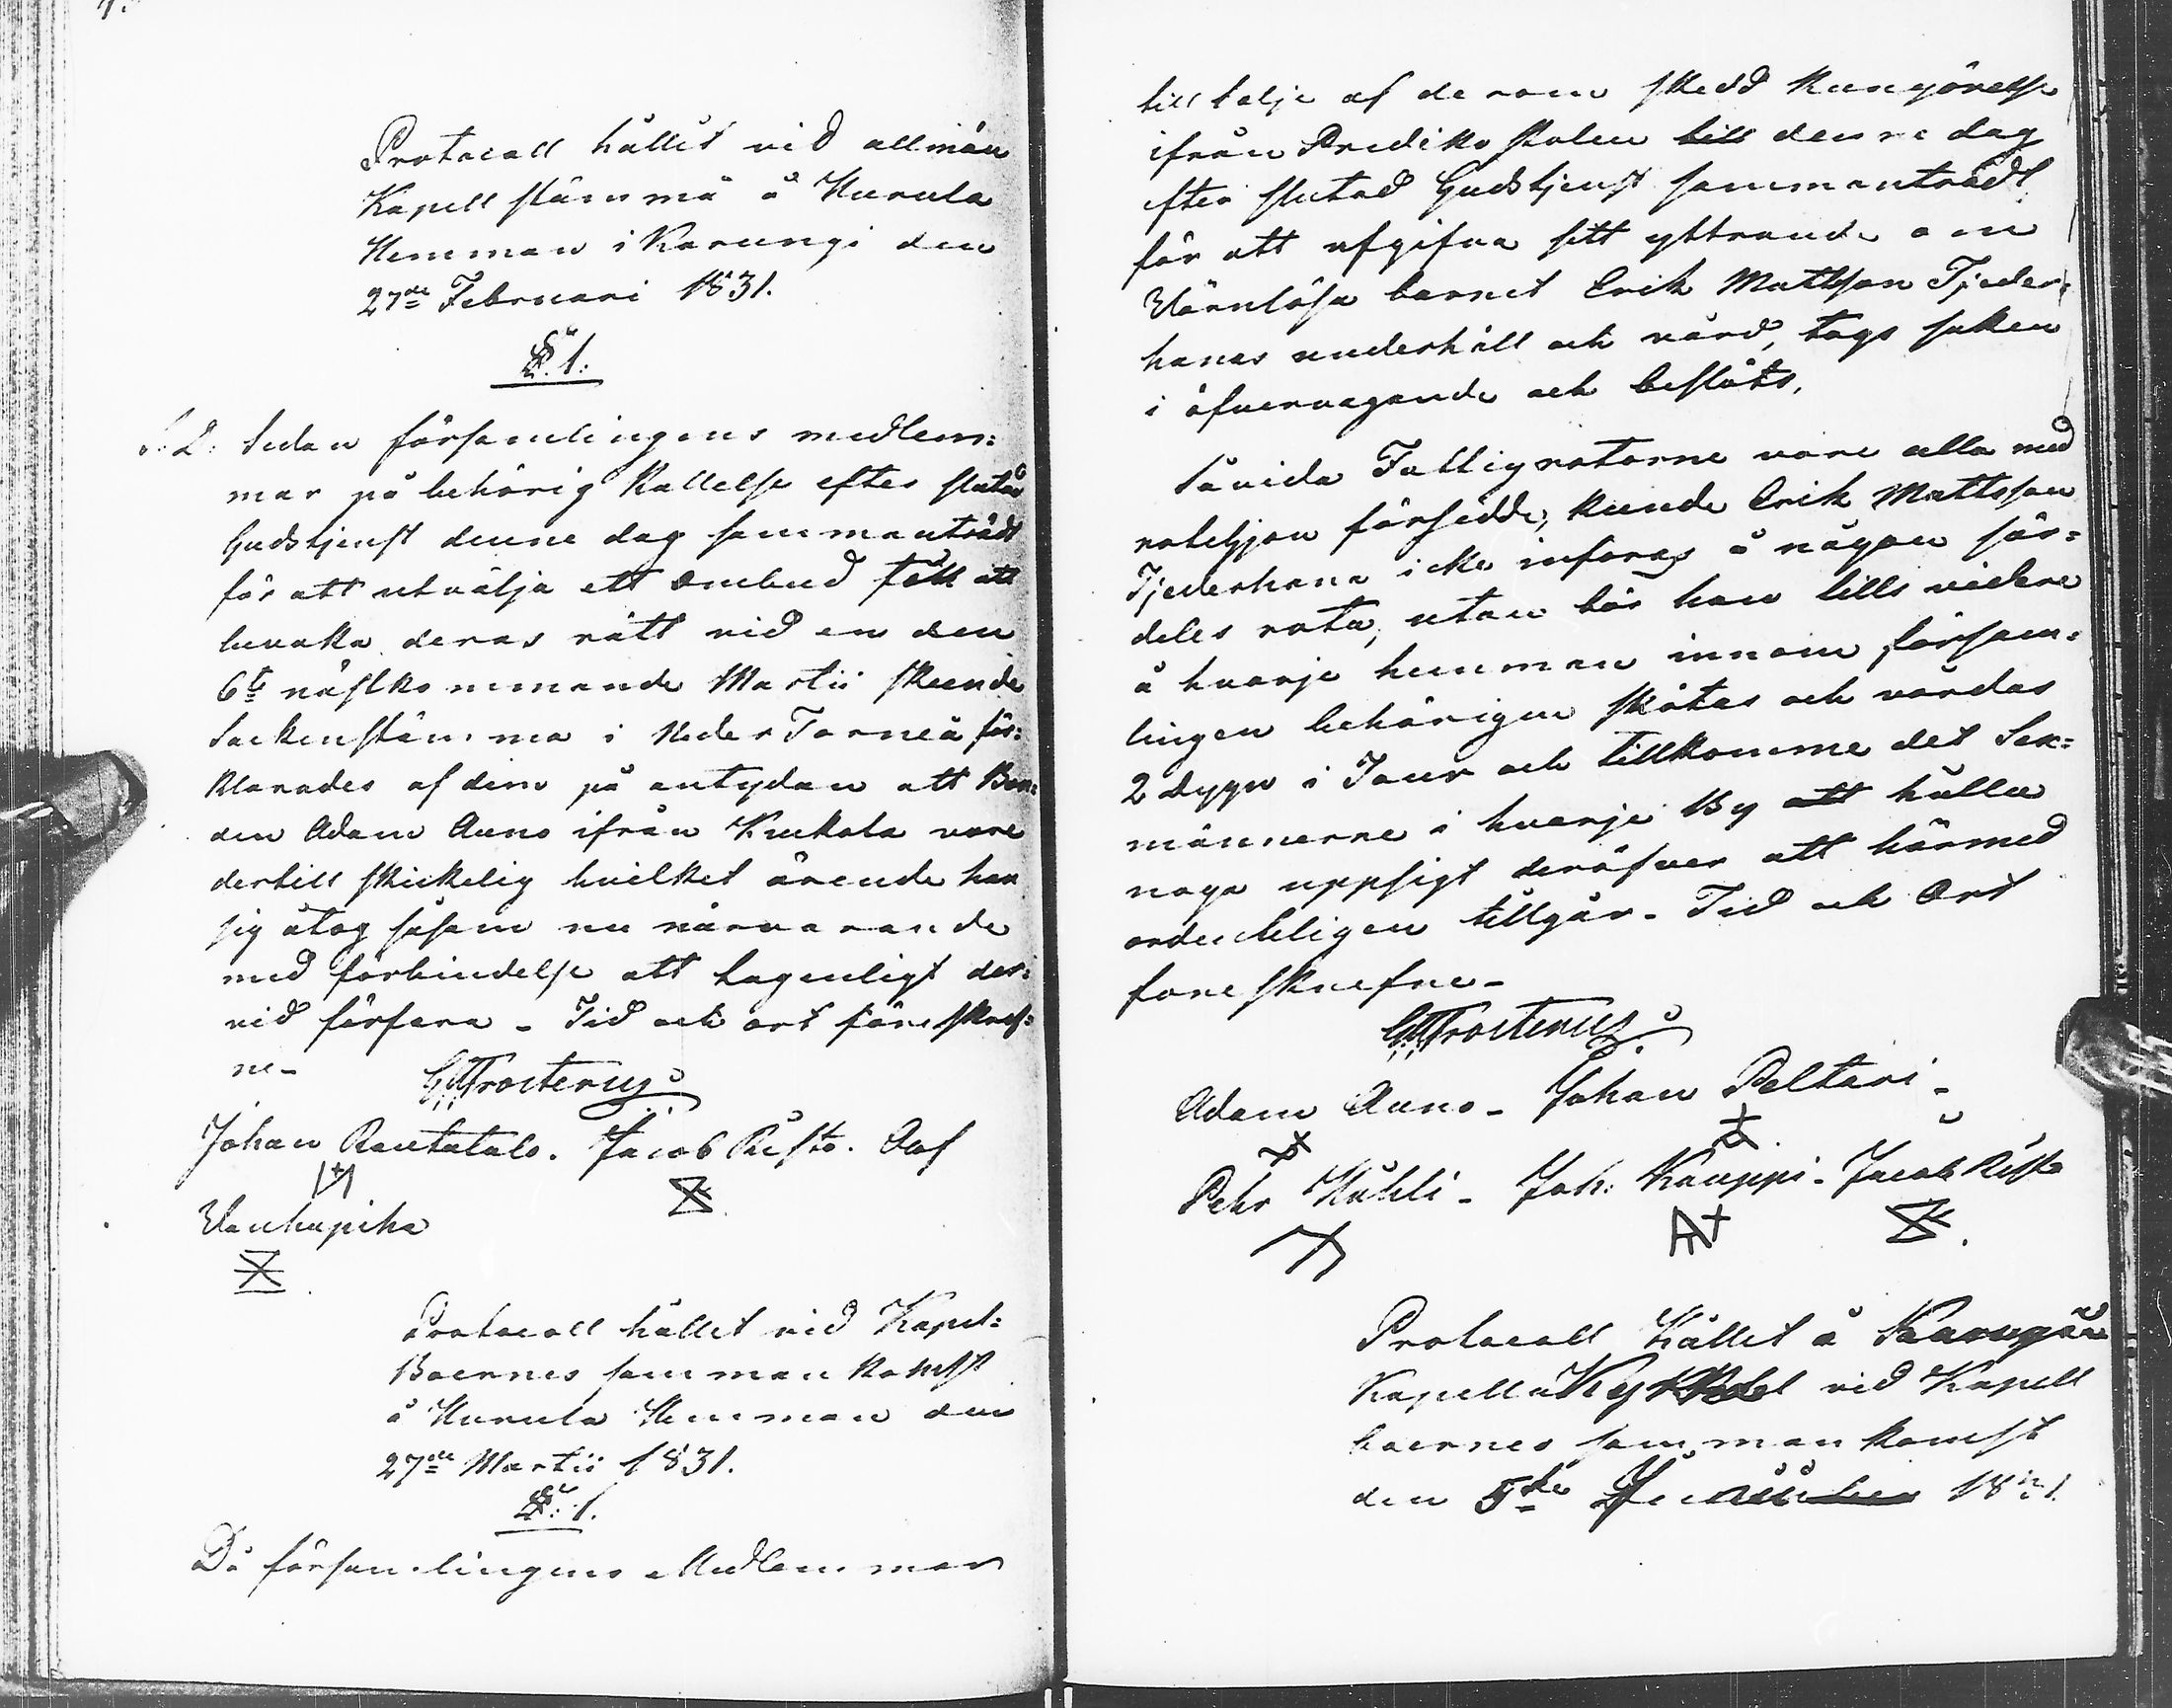 Protocoll hållit vid allmän
Kapell stämma å Kurula
Hemman i Karungi den
27de Februari 1831.
§. 1.
S. D. Sedan församlingens medlem:
mar på behörig Kallelse efter slutad
Gudstjenst denne dag sammanträdt
för att utvälja ett Ombud för att
bevaka deras rätt vid en den
6te nästkommande Martii skeende
Sockenstämma i Neder Torneå för:
klarades af dem på antydan att Bon:
den Adam Auno ifrån Kukkola vore
dertill skickelig hvilket ärende han
sig åtog såsom nu närvarande
med förbindelse att lagenligt der:
vid förfara - Tid och ort föreskref:
ne -
Johan Rautatalo. Jacob Risto. Olof
Vanhapiha
Protocoll hållet vid Kapel:
Boernes sammankomst
å Kurula Hemman den
27de Martii 1831.
§. 1.
Då församlingens Medlemmar
till följe af derom skedd Kungörelse
ifrån Predikostolen till denne dag
efter slutad Gudstjenst sammanträdt
för att afgifva sitt yttrande om
Värnlösa barnet Erik Mattsson Tjeder:
hanas underhåll och vård, togs saken
i öfvervägande och beslöts,
Såvida Fattigrotarne vore alla med
rotehjon försedde, kunde Erik Mattsson
Tjederhana icke införas å någon sär:
deles rota, utan bör han tills vidare
å hvarje hemman innom försam:
lingen behörigen skötas och vårdas
2 dygn i Tour och tillkomme det Sex:
männerne i hvarje By att hålla
noga uppsigt deröfver att härmed
ordenteligen tillgår - Tid och Ort
föreskrefne -
Adam Auno - Johan Peltari -
Pehr Kuhli - Joh: Kauppi - Jacob Risto
Protocoll Hållet å
Kapell vid Kapell
boernes sammankomst
den 5te